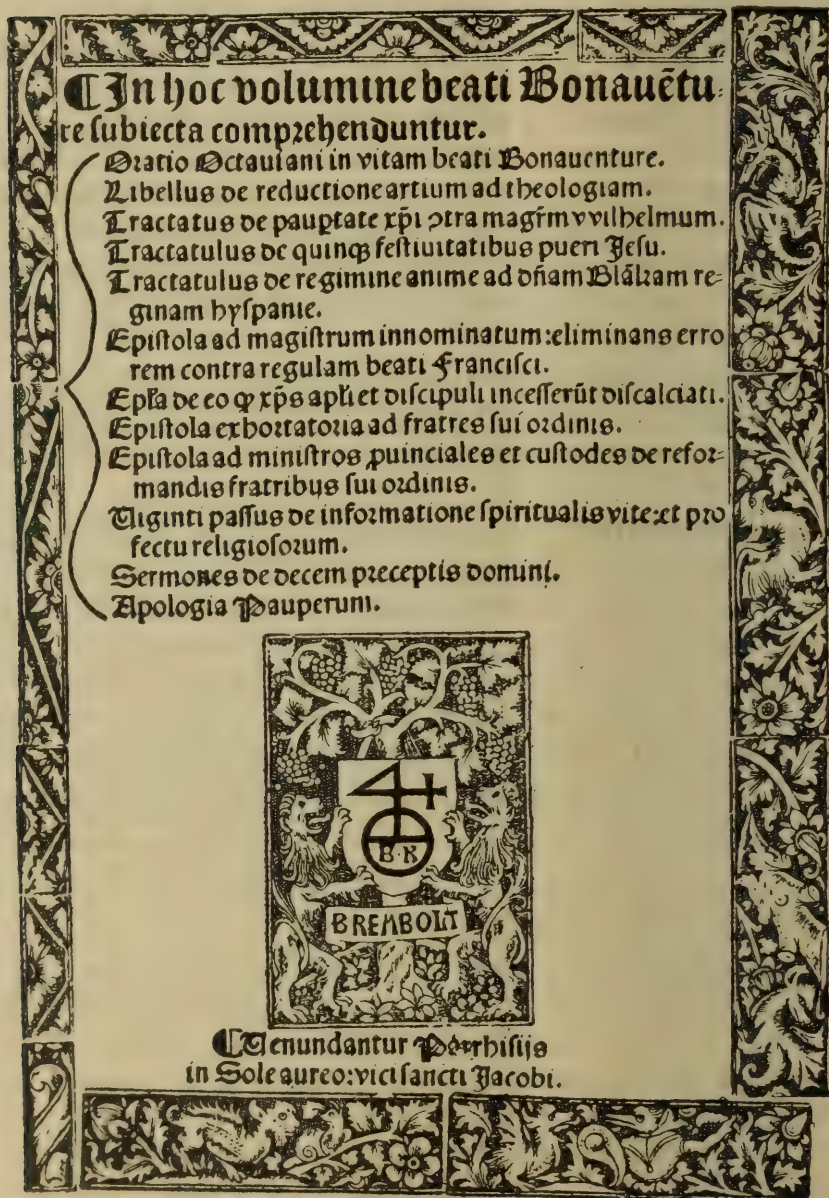 ¶In hoc volumine beati Bonauētu:
re subiecta comprehenduntur.
Oratio Octauiani in vitam beati Bonauenture.
Libellus de reductione artium ad theologiam.
Tractatus de paupertate xp̄i ↄtra magr̄m vvilhelmum.
Tractatulus de quinqꝫ festiuitatibus pueri Jesu.
Tractatulus de regimine anime ad dn̄am Blākam re⸗
ginam hyspanie.
Epistola ad magistrum innominatum: eliminans erro
rem contra regulam beati Francisci.
Epl̄a de eo ꝙ xp̄s apl̄i et discipuli incesserūt discalciati.
Epistola exhortatoria ad fratres sui ordinis.
Epistola ad ministros ꝓuinciales et custodes de refor⸗
mandis fratribus sui ordinis.
Uiginti passus de informatione spiritualis vite: et pro
fectu religiosorum.
Sermones de decem preceptis domini.
Apologia Pauperum.
B·R
BREMBOLT
¶Uenundantur Parrhisijs
in Sole aureo: vici sancti Jacobi.